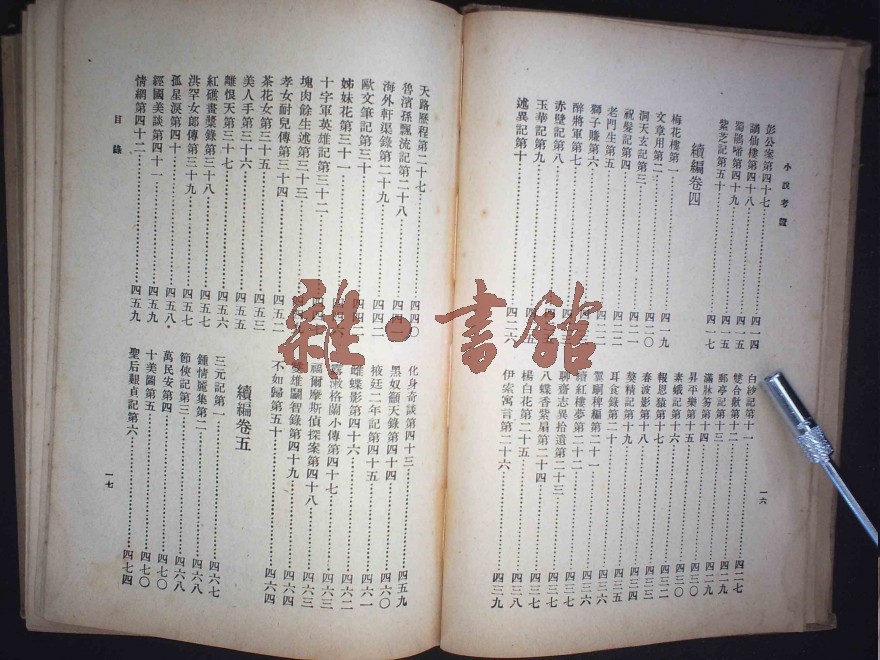 小說考證
彭公案第四十七……四一四
謫仙樓第四十八……四一五
蜀鵑啼第四十九……四一五
紫芝記第五十……四一七
續編卷四
梅花樓第一……四一九
文章用第二……四二〇
洞天玄記第三……四二一
祝髮記第四……四二一
老門生第五……四二二
獅子賺第六……四二二
醉將軍第七
赤壁記第八
玉華記第九
述異記第十……四二六
白紗記第十一……四二七
雙合歡第十二……四二八
郵亭記第十三……四二九
滿牀笏第十四……四二九
昇平樂第十五……四三〇
素蛾記第十六……四三〇
報恩猿第十七……四三三
春波影第十八……四三三
獒精記第十九……四三四
耳食錄第二十……四三五
翼駉稗編第二十一……四三六
續紅樓夢第二十二……四三六
聊齋志異拾遺第二十三……四三七
八蝶香紫扇第二十四……四三七
楊白花第二十五……四三八
伊索寓言第二十六……四三九
一六
天路歷程第二十七……四四〇
魯濱孫飄流記第二十八……四四一
海外軒渠錄第二十九……四四二
歐文筆記第三十
姊妹花第三十一
十字軍英雄記第三十二
塊肉餘生述第三十三
孝女耐兒傳第三十四……四五二
茶花女第三十五……四五三
美人手第三十六……四五五
離恨天第三十七……四五六
紅礁畫槳錄第三十八……四五七
洪罕女郎傳第三十九……四五七
孤星淚第四十……四五八
經國美談第四十一……四五九
情網第四十二……四五九
目錄
化身奇談第四十三……四五九
黑奴籲天錄第四十四……四六〇
掖廷二年記第四十五……四六一
雌蝶影第四十六……四六二
格蘭小傳第四十七……四六三
福爾摩斯偵探案第四十八……四六三
雙雄鬭智錄第四十九……四六四
不如歸第五十……四六四
續編卷五
三元記第一……四六七
鍾情麗集第二……四六八
節俠記第三……四六八
萬民安第四……四七〇
十美圖第五……四七〇
聖后觀貞記第六……四七四
一七
雜·書館